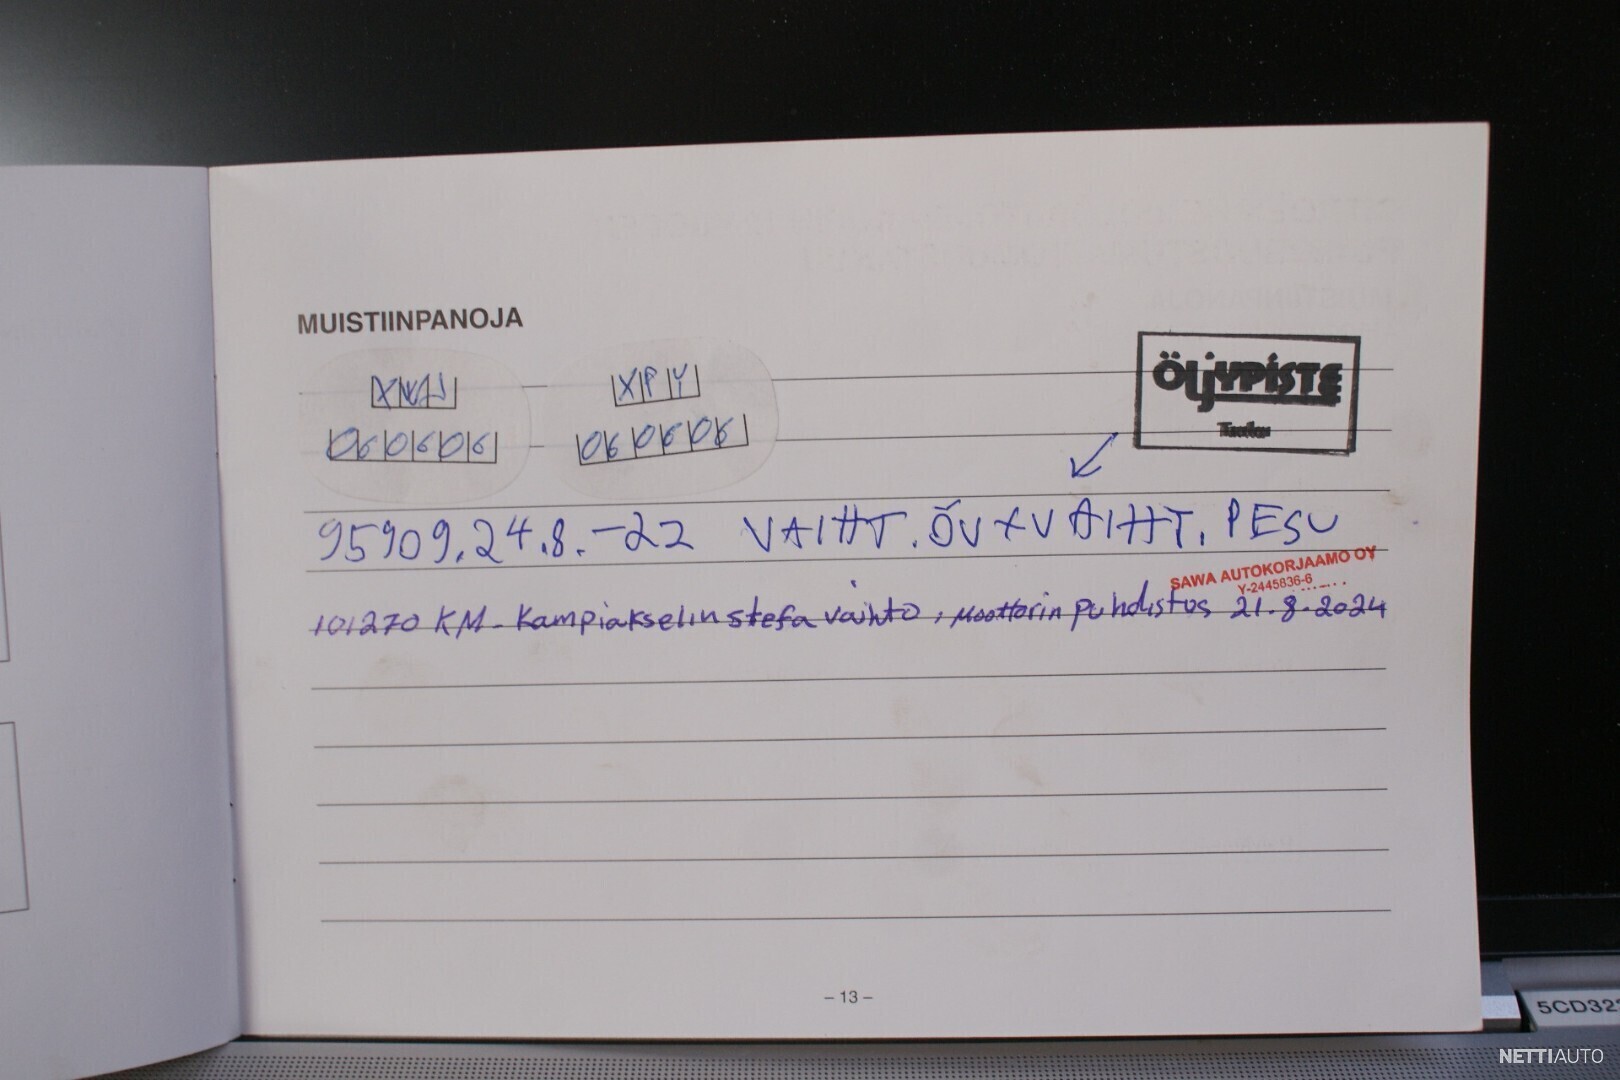 MUISTIINPANOJA
XPY
060606 060606
ÖLJYPISTE
95909. 24.8.-22 VAIHT. ÖV+VAIHT. PESU
SAWA AUTOKORJAAMO OY
Y-2445836-6
101270 KM - Kampiakselin stefa vaihto, Moottorin puhdistus 21.8.2024
- 13 -
5CD322
NETTIAUTO